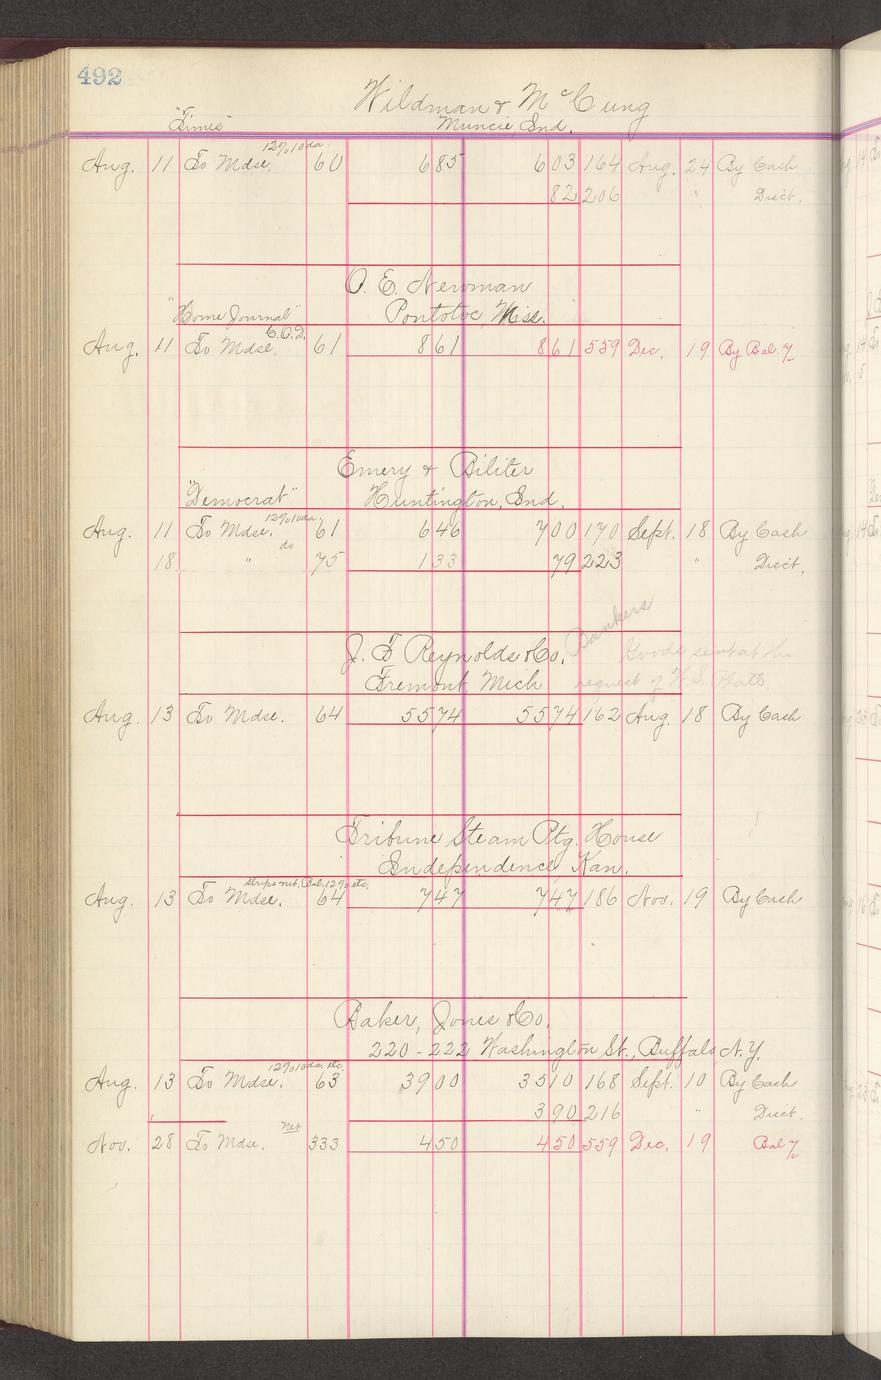 492
Wildman & McCung
"Times" Muncie, Ind.
12% 10 da.
Aug. 11 To Mdse. 60 6 85 6 03 164 Aug. 24 By Cash
82 206 " Disct.
O. E. Newman
"Home Journal" Pontotoc, Miss.
C.O.D.
Aug. 11 To Mdse. 61 8 61 8 61 559 Dec. 19 By Bal. %
Emery & Biliter
"Democrat" Huntington, Ind.
12% 10 da.
Aug. 11 To Mdse. 61 6 46 7 00 170 Sept. 18 By Cash
do
18 " 75 1 33 79 223 " Disct.
Bankers
J. F. Reynolds & Co. Goods sent at the
Fremont, Mich request of W. S. Platt
Aug. 13 To Mdse. 64 55 74 55 74 162 Aug. 18 By Cash
Tribune Steam Ptg. House
Independence Kan.
strips net, Bal. 12% etc.
Aug. 13 To Mdse. 64 7 47 7 47 186 Nov. 19 By Cash
Baker, Jones & Co.
220-222 Washington St., Buffalo, N.Y.
12% 10 da. etc.
Aug. 13 To Mdse. 63 39 00 35 10 168 Sept. 10 By Cash
3 90 216 " Disct.
Net
Nov. 28 To Mdse. 333 4 50 4 50 559 Dec. 19 Bal %